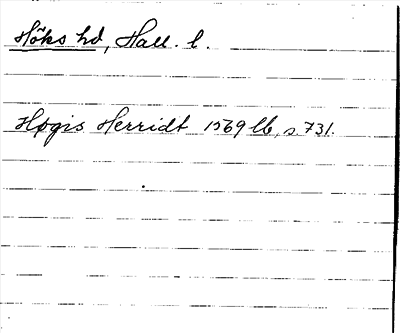 Höks hd, Hall. l.
Høgis Herridt 1569 Lb, s. 731.